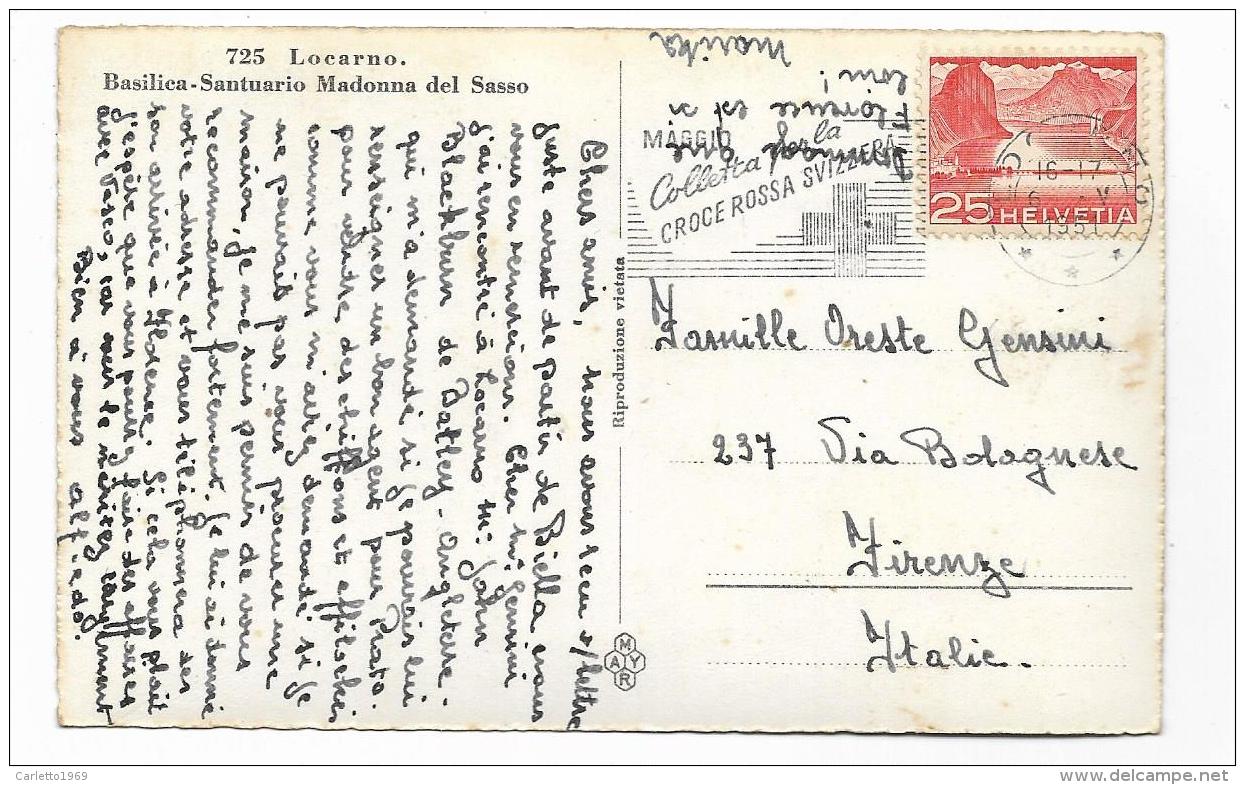 725 Locarno.
Basilica-Santuario Madonna del Sasso
Chers amis, nous avons reçu v/lettre
juste avant de partir de Biella, nous
vous en remercions. Cher Mr. Gensini
j'ai rencontré à Locarno Mr. John
Blackburn de Batley - Angleterre.
qui m'a demandé si je pourrais lui
renseigner un bon agent pour Prato.
pour vendre des chiffons et effilochés
comme vous m'avez demandé si je
ne pouvais pas vous procurer une
maison, je me suis permis de vous
recommander fortement. Je lui ai donné
votre adresse et vous téléphonera dès
son arrivée à Florence. Si cela vous plait
j'espère que vous pourrez faire des affaires
avec Vasco, car vous le méritez largement
Bien à vous Alfredo.
Dommage que
Florence est si
loin!
Marika
MAGGIO
Colletta per la
CROCE ROSSA SVIZZERA
16-17
1951
25 HELVETIA
Riproduzione vietata
Famille Oreste Gensini
237 Via Bolognese
Firenze
Italie.
MAYR
Carletto1969
delcampe.net